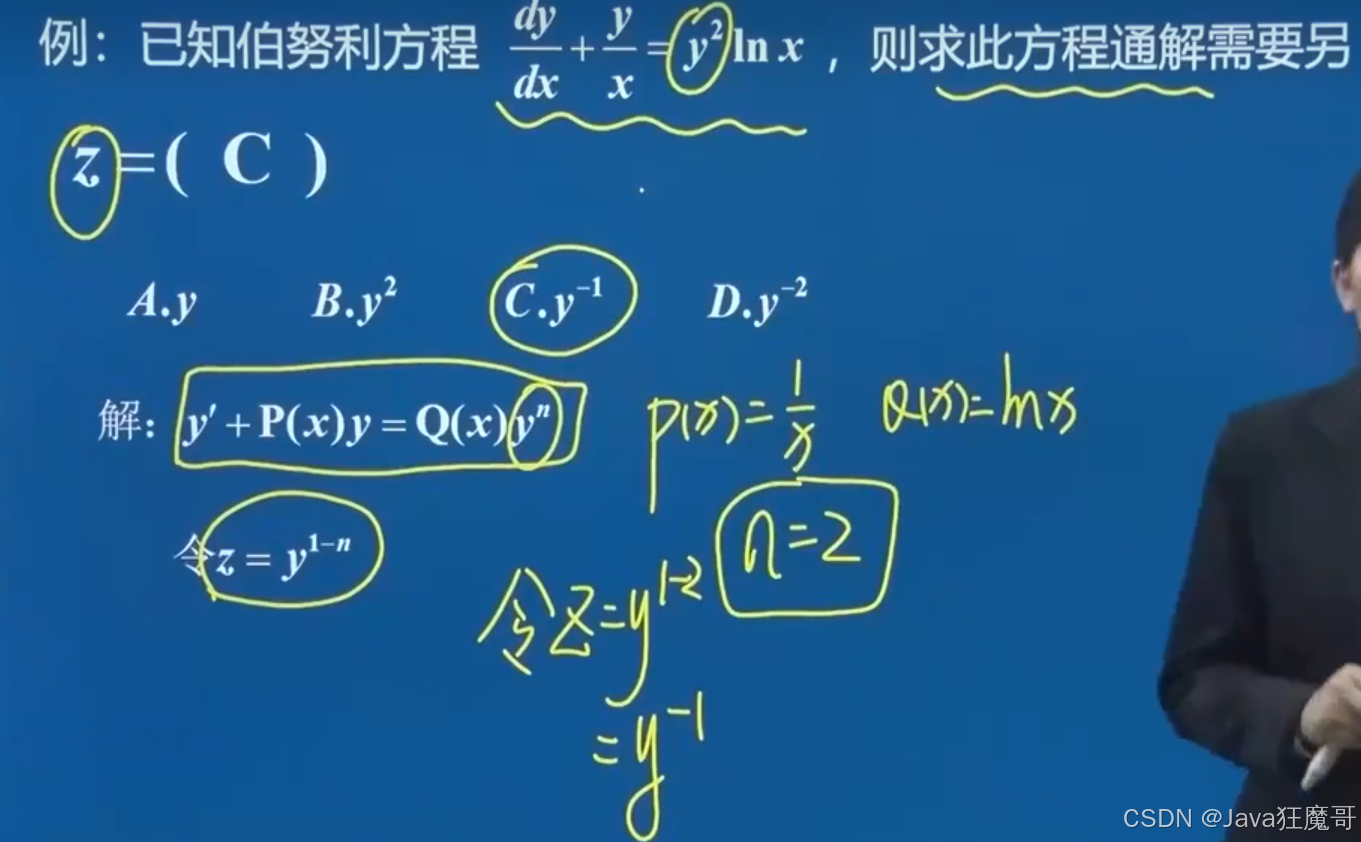 例：已知伯努利方程 dy/dx + y/x = y² ln x ，则求此方程通解需要另
z = ( C )
A.y B.y² C.y⁻¹ D.y⁻²
解：y′ + P(x)y = Q(x)yⁿ p(x) = 1/x Q(x) = lnx
n=2
令z = y¹⁻ⁿ
令z=y¹⁻²
=y⁻¹
CSDN @Java狂魔哥